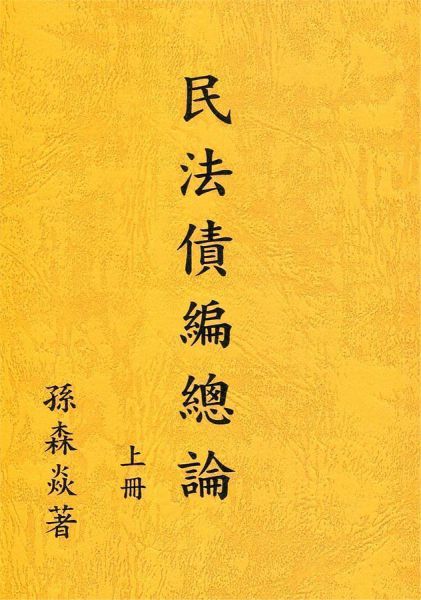 民法債編總論
上冊
孫森焱著